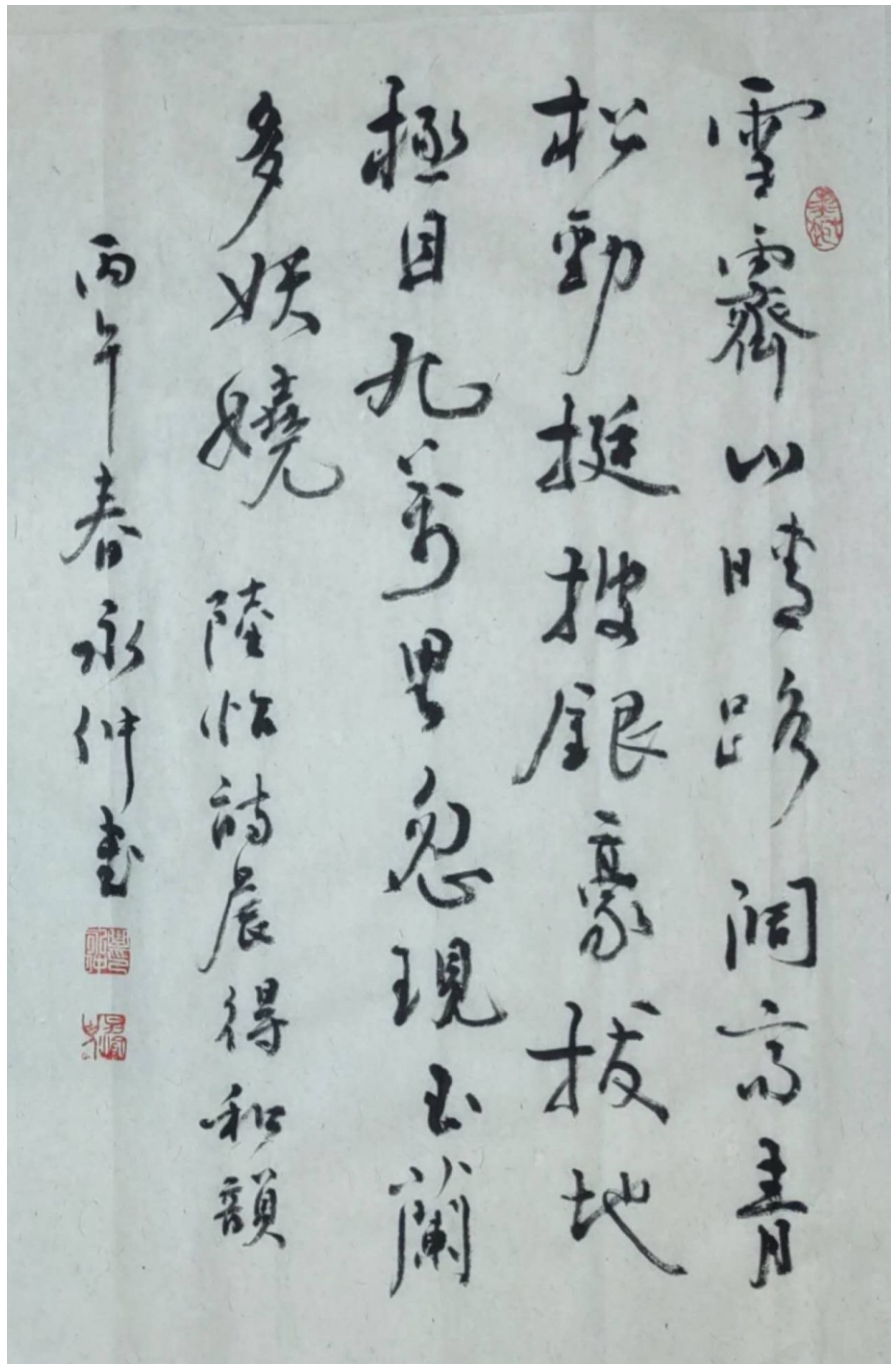 雪霽山晴路闊高青
松勁挺披銀豪拔地
極目九萬里忽現玉蘭
多妖嬈 陸怡詩晨得和韻
丙午春永仲書